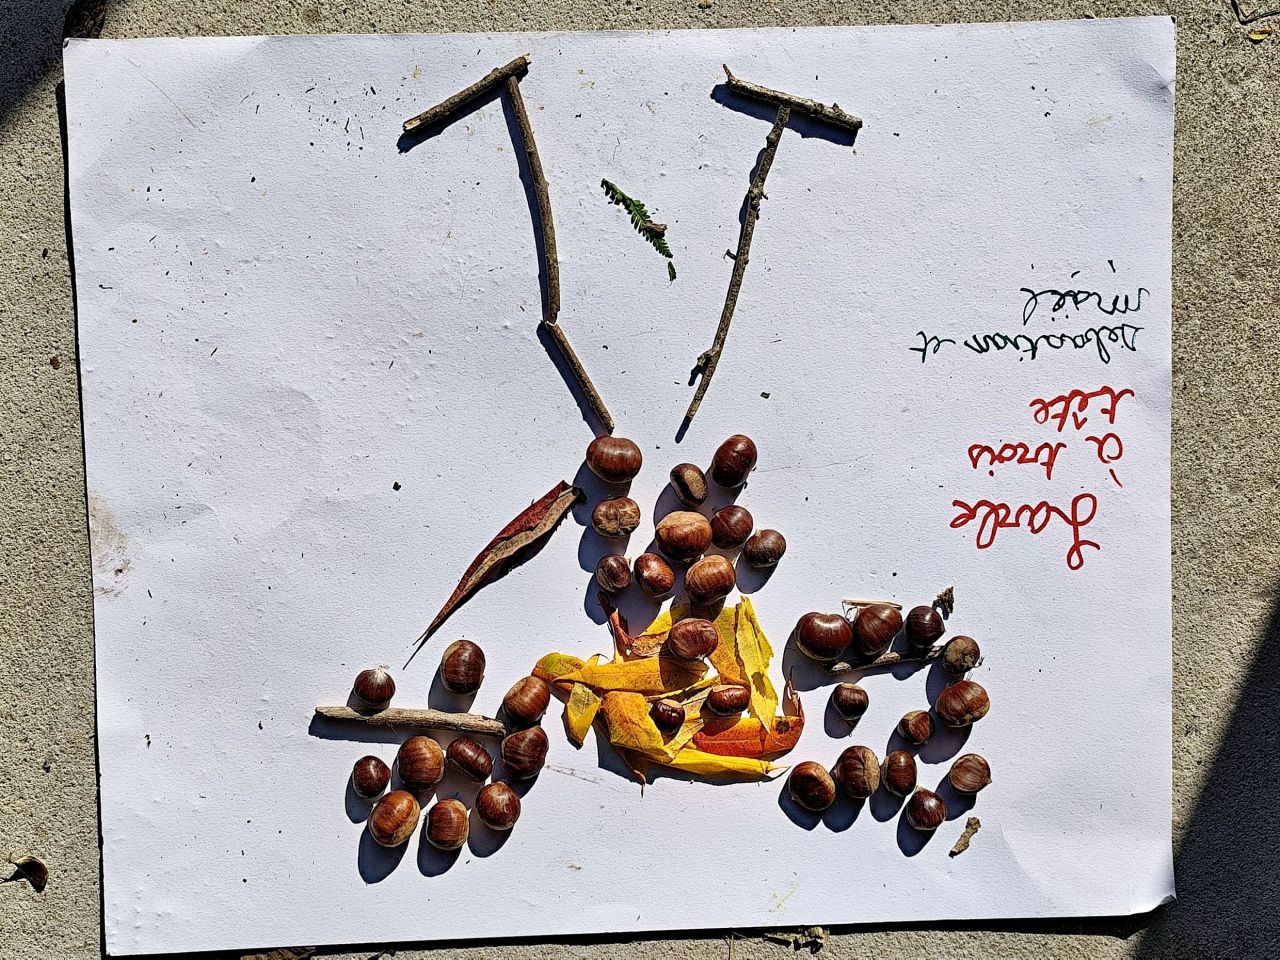 Larve
à trois
tête
sebastian et
maël